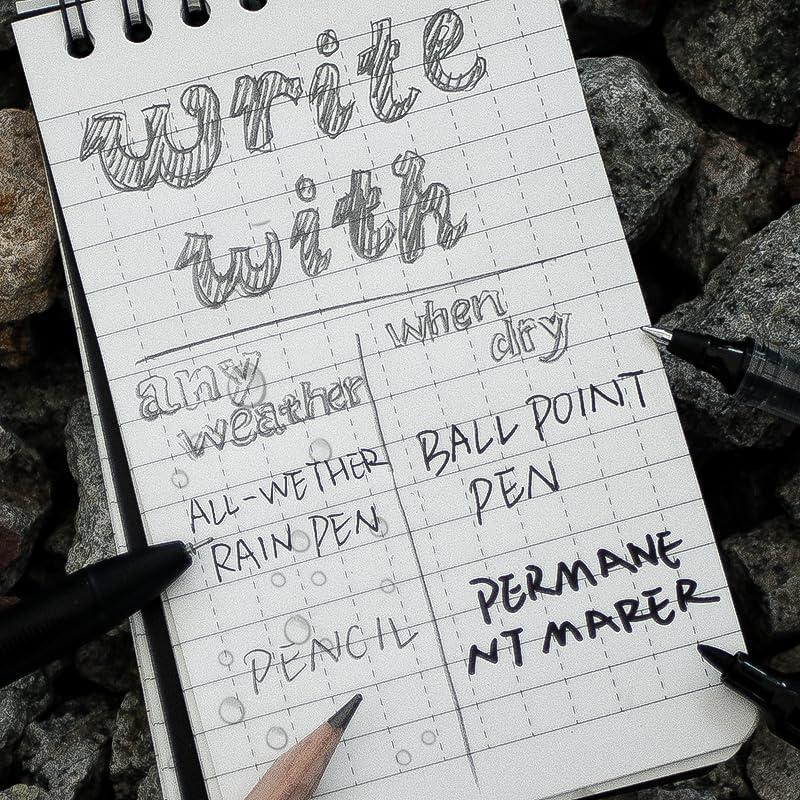 write
with
any
weather
ALL-WETHER
RAIN PEN
PENCIL
when
dry
BALL POINT
PEN
PERMANE
NT MARER